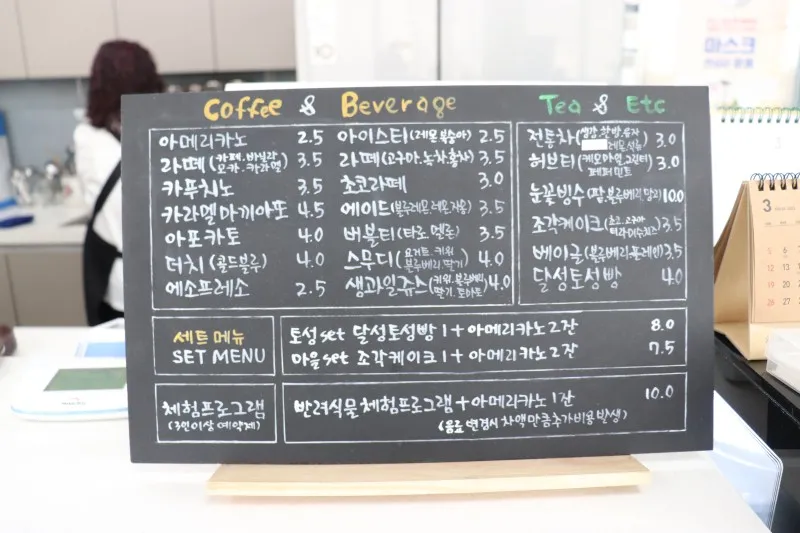 Coffee & Beverage
아메리카노 2.5
라떼 (카페.바닐라 모카.카라멜) 3.5
카푸치노 3.5
카라멜마끼아또 4.5
아포카토 4.0
더치 (콜드브루) 4.0
에소프레소 2.5
아이스티 (레몬.복숭아) 2.5
라떼 (고구마.녹차.홍차) 3.5
초코라떼 3.0
에이드 (블루레몬.레몬.자몽) 3.5
버블티 (타로.멜론) 3.5
스무디 (요거트.키위 블루베리.딸기) 4.0
생과일쥬스 (키위.블루베리 딸기.토마토) 4.0
Tea & Etc
전통차 (생강.쌍화.유자 레몬.석류) 3.0
허브티 (케모마일.그린티 페퍼민트) 3.0
눈꽃빙수 (팥.블루베리.) 10.0
조각케이크 (초코.고구마 티라미수.치즈) 3.5
베이글 (블루베리.플레인) 3.5
달성토성빵 4.0
세트메뉴
SET MENU
토성set 달성토성빵 1 + 아메리카노 2잔 8.0
마을set 조각케이크 1 + 아메리카노 2잔 7.5
체험프로그램
(3인이상 예약제)
반려식물 체험프로그램 + 아메리카노 1잔 10.0
(음료 변경시 차액만큼 추가비용 발생)
마스크
3